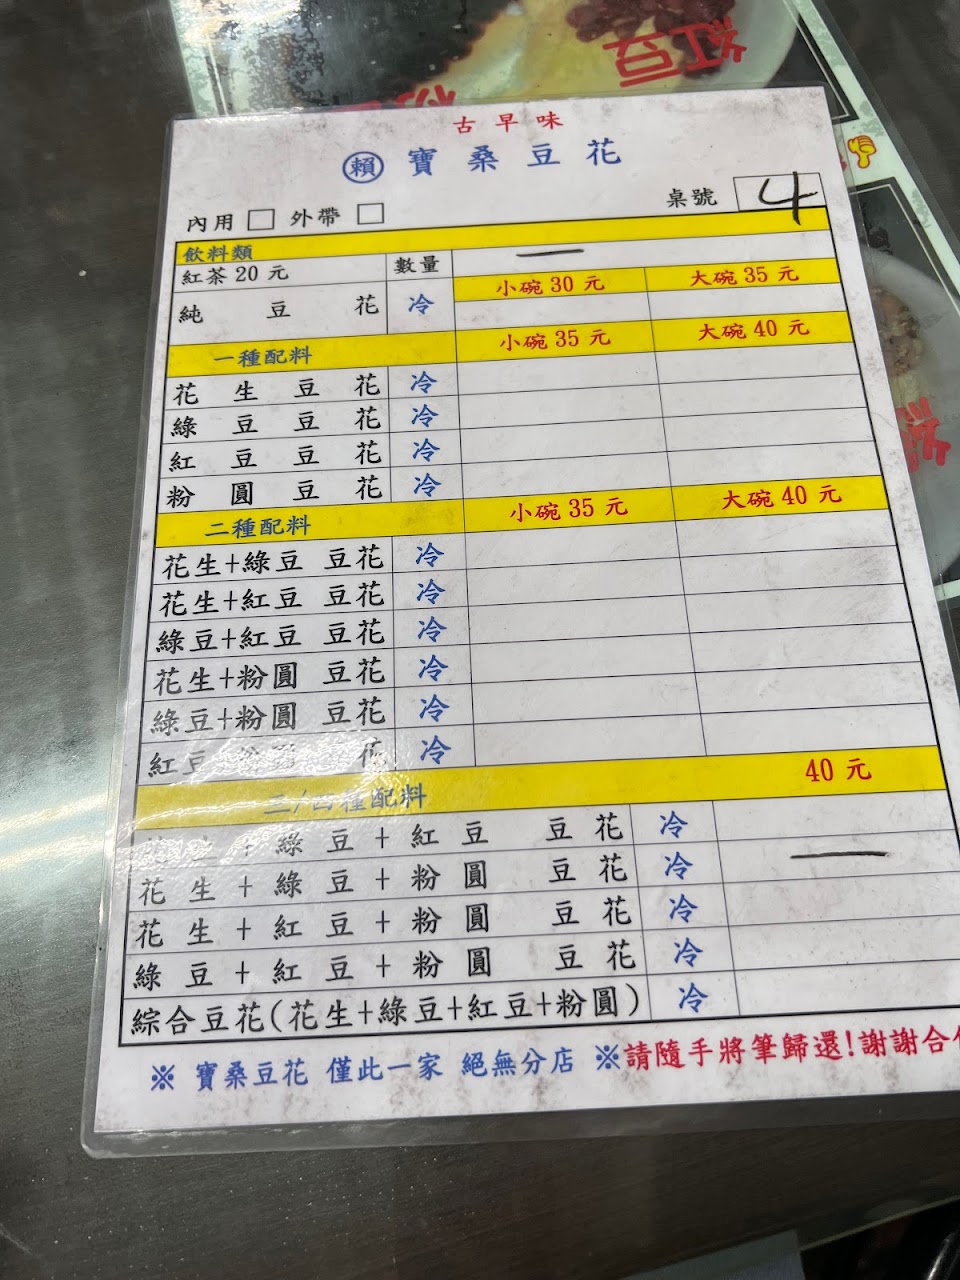 紅豆
古早味
賴 寶桑豆花
內用 □ 外帶 □ 桌號 4
飲料類
紅茶20元 數量 一
純豆花 冷 小碗30元 大碗35元
一種配料 小碗35元 大碗40元
花生豆花 冷
綠豆豆花 冷
紅豆豆花 冷
粉圓豆花 冷
二種配料 小碗35元 大碗40元
花生+綠豆 豆花 冷
花生+紅豆 豆花 冷
綠豆+紅豆 豆花 冷
花生+粉圓 豆花 冷
綠豆+粉圓 豆花 冷
紅豆 花 冷
三/四種配料 40元
生+綠豆+紅豆 豆花 冷
花生+綠豆+粉圓 豆花 冷 一
花生+紅豆+粉圓 豆花 冷
綠豆+紅豆+粉圓 豆花 冷
綜合豆花(花生+綠豆+紅豆+粉圓) 冷
※ 寶桑豆花 僅此一家 絕無分店 ※請隨手將筆歸還!謝謝合